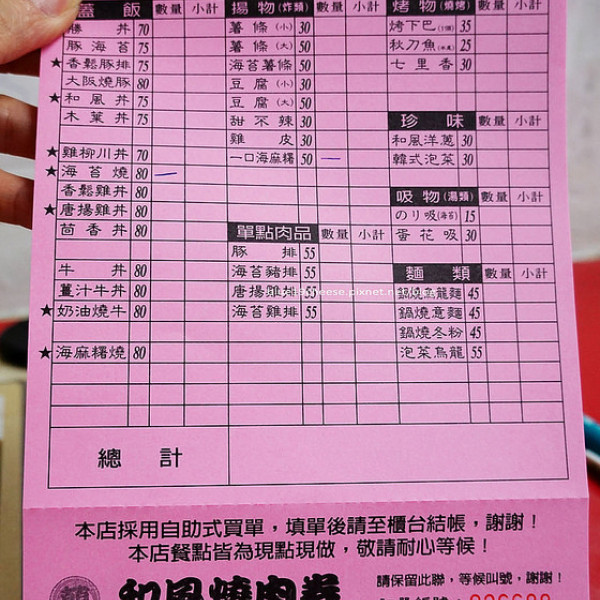 蓋飯 數量 小計
勝丼 70
豚海苔 75
★香鬆豚排 75
大阪燒豚 80
★和風丼 75
木葉丼 75
★雞柳川丼 70
★海苔燒 80 一
香鬆雞丼 80
★唐揚雞丼 80
茴香丼 80
牛丼 80
薑汁牛丼 80
★奶油燒牛 80
★海麻糬燒 80
揚物(炸類) 數量 小計
薯條(小) 30
薯條(大) 50
海苔薯條 50
豆腐(小) 30
豆腐(大) 50
甜不辣 30
雞皮 30
一口海麻糬 50 一
單點肉品 數量 小計
豚排 55
海苔豬排 55
唐揚雞排 55
海苔雞排 55
烤物(燒烤) 數量 小計
烤下巴 35
秋刀魚 25
七里香 30
珍味 數量 小計
和風洋蔥 30
韓式泡菜 30
吸物(湯類) 數量 小計
のり吸(海苔) 15
蛋花吸 30
麵類 數量 小計
鍋燒烏龍麵 45
鍋燒意麵 45
鍋燒冬粉 45
泡菜烏龍 55
總計
本店採用自助式買單，填單後請至櫃台結帳，謝謝！
本店餐點皆為現點現做，敬請耐心等候！
和風燒肉卷
請保留此聯，等候叫號，謝謝！